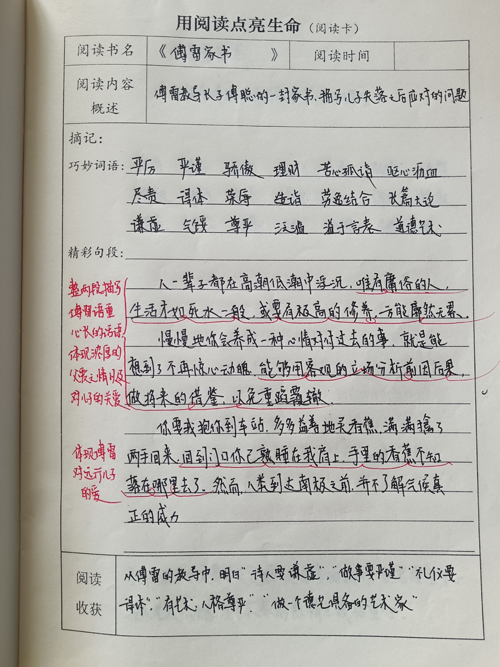 用阅读点亮生命（阅读卡）
阅读书名 《 傅雷家书 》 阅读时间
阅读内容概述 傅雷教导长子傅聪的一封家书，描写儿子失落之后应对的问题
摘记：
巧妙词语： 严厉 严谨 骄傲 理财 苦心孤诣 呕心沥血
尽责 译体 荣辱 造诣 劳逸结合 长篇大论
谦虚 气馁 尊严 泛滥 溢于言表 道德艺术
精彩句段：
人一辈子都在高潮低潮中浮沉，唯有庸俗的人，
生活才如死水一般，或要有极高的修养，方能廓然无累。
慢慢地你会养成一种心情对付过去的事，就是能
想到了不再惊心动魄，能够用客观的立场分析前因后果，
做将来的借鉴，以免重蹈覆辙。
你要我抱你到车站，多多益善地买香蕉，满满捡了
两手回来，回到门口你已熟睡在我肩上，手里的香蕉不知
落在哪里去了。然而，人类到达南极之前，并不了解气候真
正的威力
整两段描写
傅雷语重
心长的话语，
体现浓厚的
父爱之情以及
对儿子的关爱
体现傅雷
对远方儿子
的爱
阅读收获 从傅雷的教导中，明白“诗人要谦虚”，“做事要严谨”“礼仪要
译体”，“有艺术、人格尊严”，“做一个德艺俱备的艺术家”